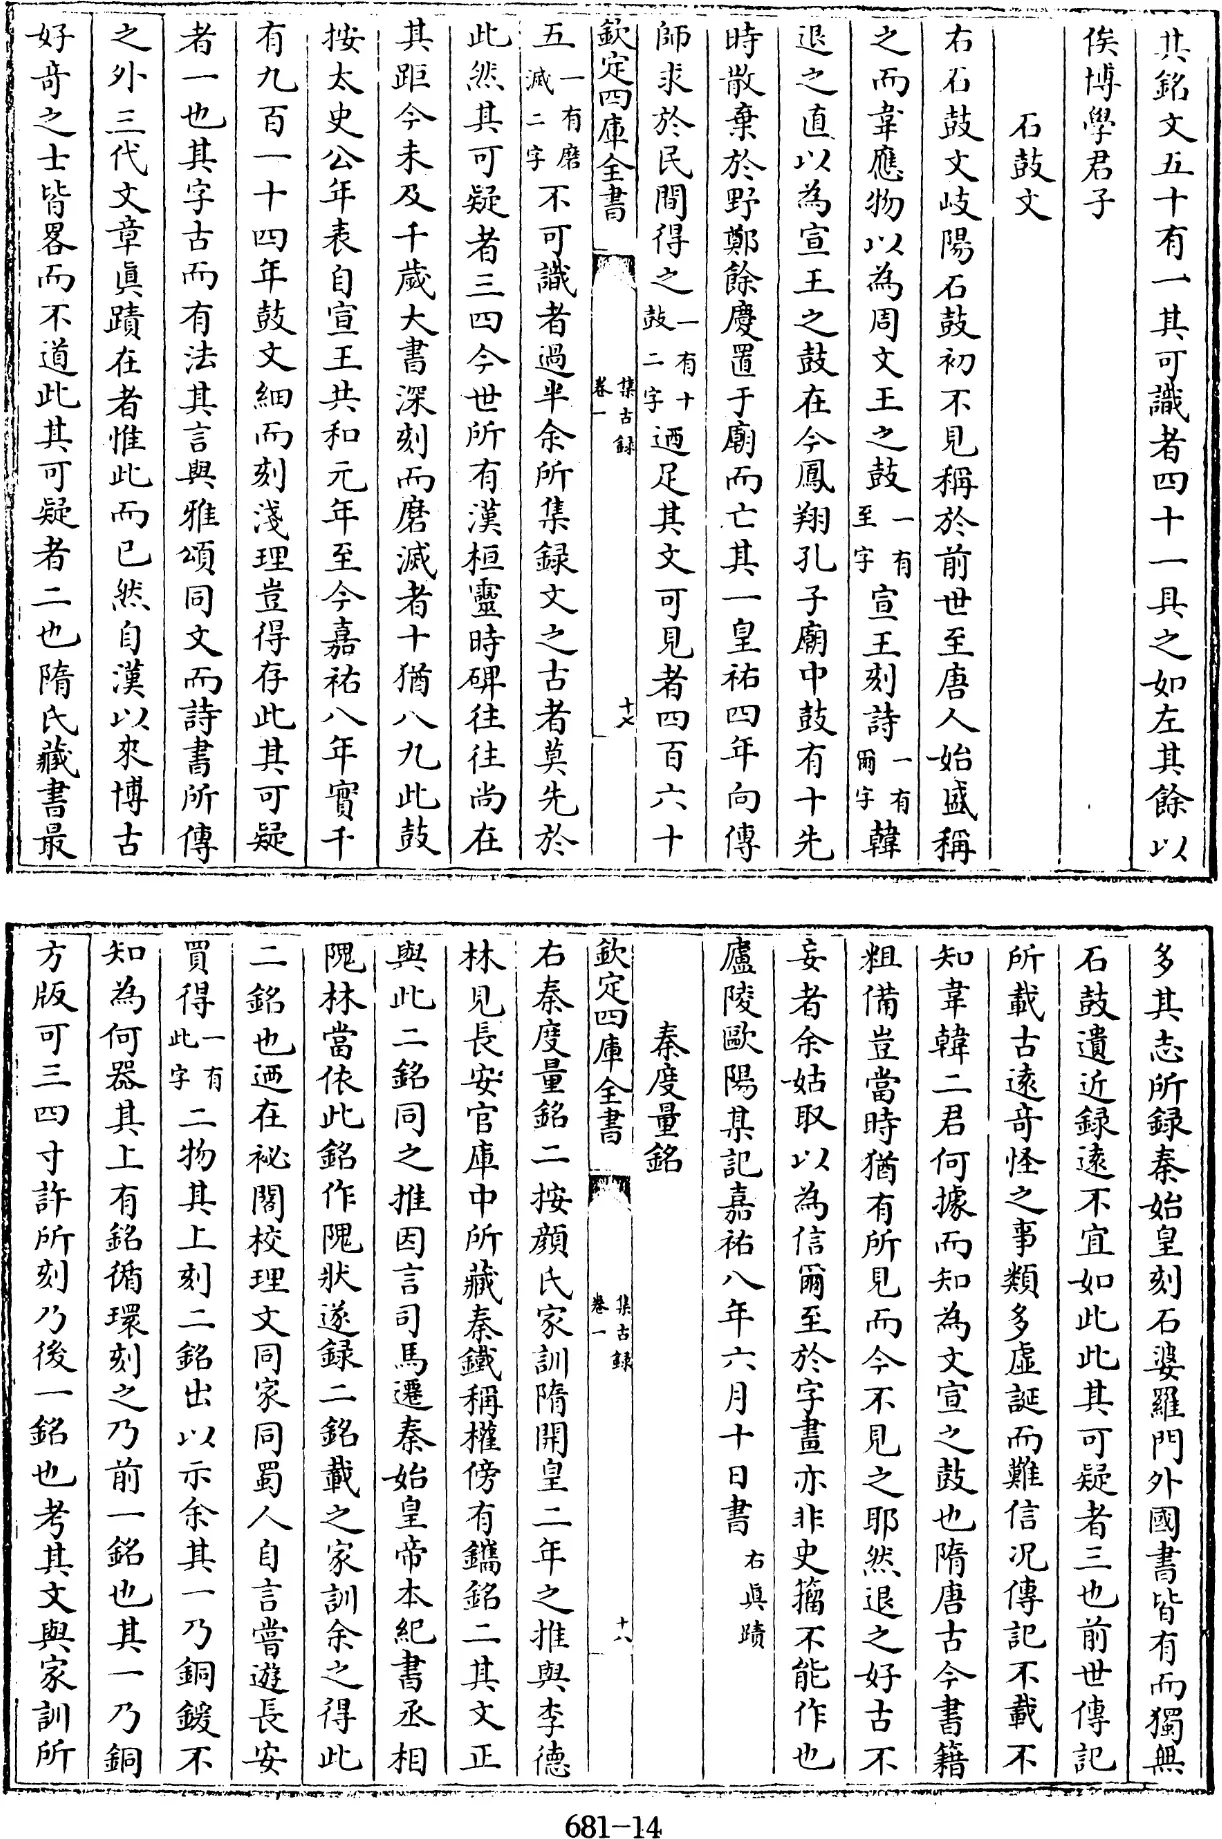 其銘文五十有一其可識者四十一具之如左其餘以
俟博學君子
石鼓文
右石鼓文岐陽石鼓初不見稱於前世至唐人始盛稱
之而韋應物以為周文王之鼓一有至字宣王刻詩一有爾字韓
退之直以為宣王之鼓在今鳳翔孔子廟中鼓有十先
時散棄於野鄭餘慶置于廟而亡其一皇祐四年向傳
師求於民間得之一有十鼓二字迺足其文可見者四百六十
欽定四庫全書
集古録
卷一
十七
五一有磨滅二字不可識者過半余所集録文之古者莫先於
此然其可疑者三四今世所有漢桓靈時碑往往尚在
其距今未及千歲大書深刻而磨滅者十猶八九此鼓
按太史公年表自宣王共和元年至今嘉祐八年實千
有九百一十四年鼓文細而刻淺理豈得存此其可疑
者一也其字古而有法其言與雅頌同文而詩書所傳
之外三代文章真蹟在者惟此而已然自漢以來博古
好奇之士皆畧而不道此其可疑者二也隋氏藏書最
多其志所録秦始皇刻石婆羅門外國書皆有而獨無
石鼓遺近録遠不宜如此此其可疑者三也前世傳記
所載古遠奇怪之事類多虛誕而難信況傳記不載不
知韋韓二君何據而知為文宣之鼓也隋唐古今書籍
粗備豈當時猶有所見而今不見之耶然退之好古不
妄者余姑取以為信爾至於字畫亦非史籀不能作也
廬陵歐陽某記嘉祐八年六月十日書右真蹟
秦度量銘
欽定四庫全書
集古録
卷一
十八
右秦度量銘二按顔氏家訓隋開皇二年之推與李德
林見長安官庫中所藏秦鐵稱權傍有鐫銘二其文正
與此二銘同之推因言司馬遷秦始皇帝本紀書丞相
隗林當依此銘作隗狀遂録二銘載之家訓余之得此
二銘也迺在祕閣校理文同家同蜀人自言嘗遊長安
買得一有此字二物其上刻二銘出以示余其一乃銅鍰不
知為何器其上有銘循環刻之乃前一銘也其一乃銅
方版可三四寸許所刻乃後一銘也考其文與家訓所
681-14